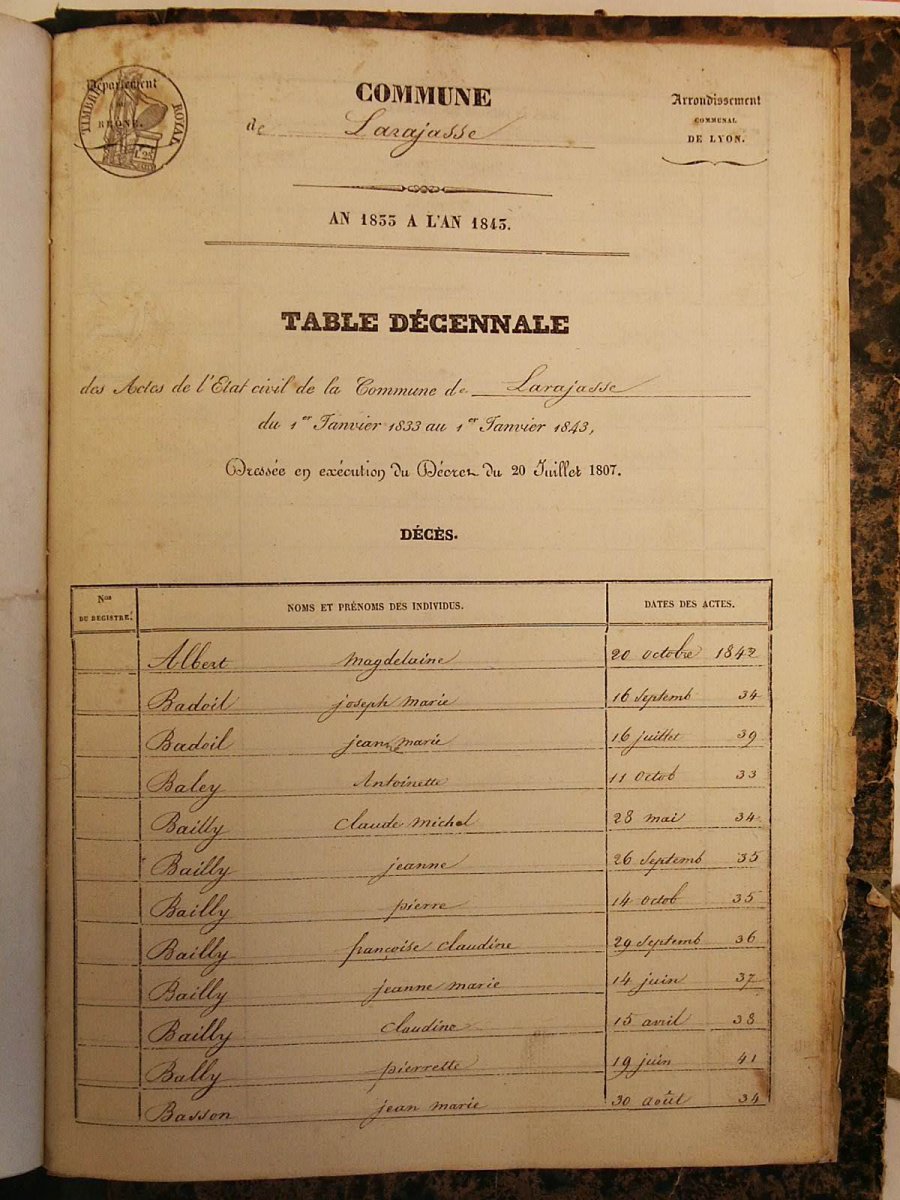 Département
DU
RHÔNE.
TIMBRE ROYAL
1.25
COMMUNE
de Larajasse
Arrondissement
COMMUNAL
DE LYON.
AN 1833 A L'AN 1843.
TABLE DÉCENNALE
des Actes de l'Etat civil de la Commune de Larajasse
du 1er Janvier 1833 au 1er Janvier 1843,
Dressée en exécution du Décret du 20 Juillet 1807.
DÉCÈS.
Nos DU REGISTRE. NOMS ET PRÉNOMS DES INDIVIDUS. DATES DES ACTES.
Albert Magdelaine 20 octobre 1842
Badoil joseph Marie 16 Septemb 34
Badoil jean marie 16 juillet 39
Baley Antoinette 11 Octob 33
Bailly Claude Michel 28 mai 34
Bailly jeanne 26 Septemb 35
Bailly pierre 14 Octob 35
Bailly françoise Claudine 29 Septemb 36
Bailly jeanne marie 14 juin 37
Bailly Claudine 15 avril 38
Bally pierrette 19 juin 41
Basson jean marie 30 août 34